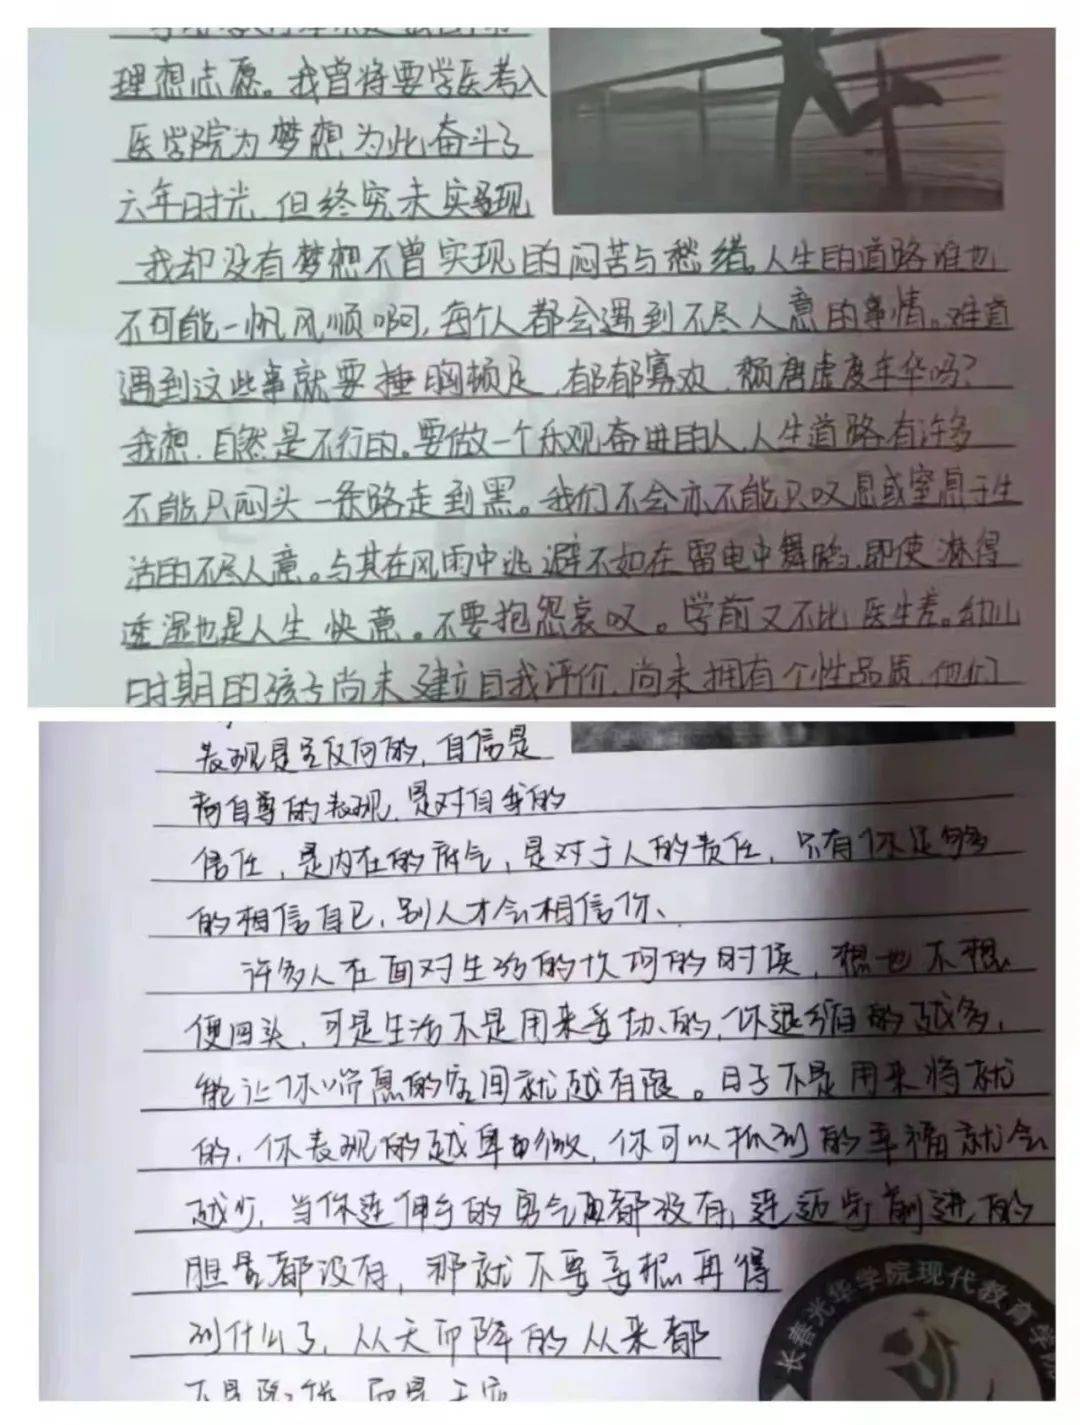 理想志愿。我曾将要学医考入
医学院为梦想为此奋斗了
六年时光,但终究未实现
我却没有梦想不曾实现的闷苦与愁绪。人生的道路谁也
不可能一帆风顺啊,每个人都会遇到不尽人意的事情。难道
遇到这些事就要捶胸顿足,郁郁寡欢,颓唐虚度年华吗?
我想,自然是不行的。要做一个乐观奋进的人,人生道路有许多
不能只闷头一条路走到黑。我们不会亦不能只叹息或窒息于生
活的不尽人意。与其在风雨中逃避不如在雷电中舞蹈,即使淋得
透湿也是人生快意。不要抱怨哀叹。学前又不比医生差。幼儿
时期的孩子尚未建立自我评价,尚未拥有个性品质,他们
表现是应付的,自信是
自尊的表现,是对自我的
信任,是内在的底气,是对于人的责任,只有你足够多
的相信自己,别人才会相信你、
许多人在面对生活的坎坷的时候,想也不想
便回头,可是生活不是用来妥协的,你退缩的越多,
能让你喘息的空间就越有限。日子不是用来将就
的,你表现的越卑微,你可以抓到的幸福就会
越少,当你连伸手的勇气都没有,连迈步前进的
胆量都没有,那就不要妄想再得
到什么了,从天而降的从来都
长春光华学院现代教育学院